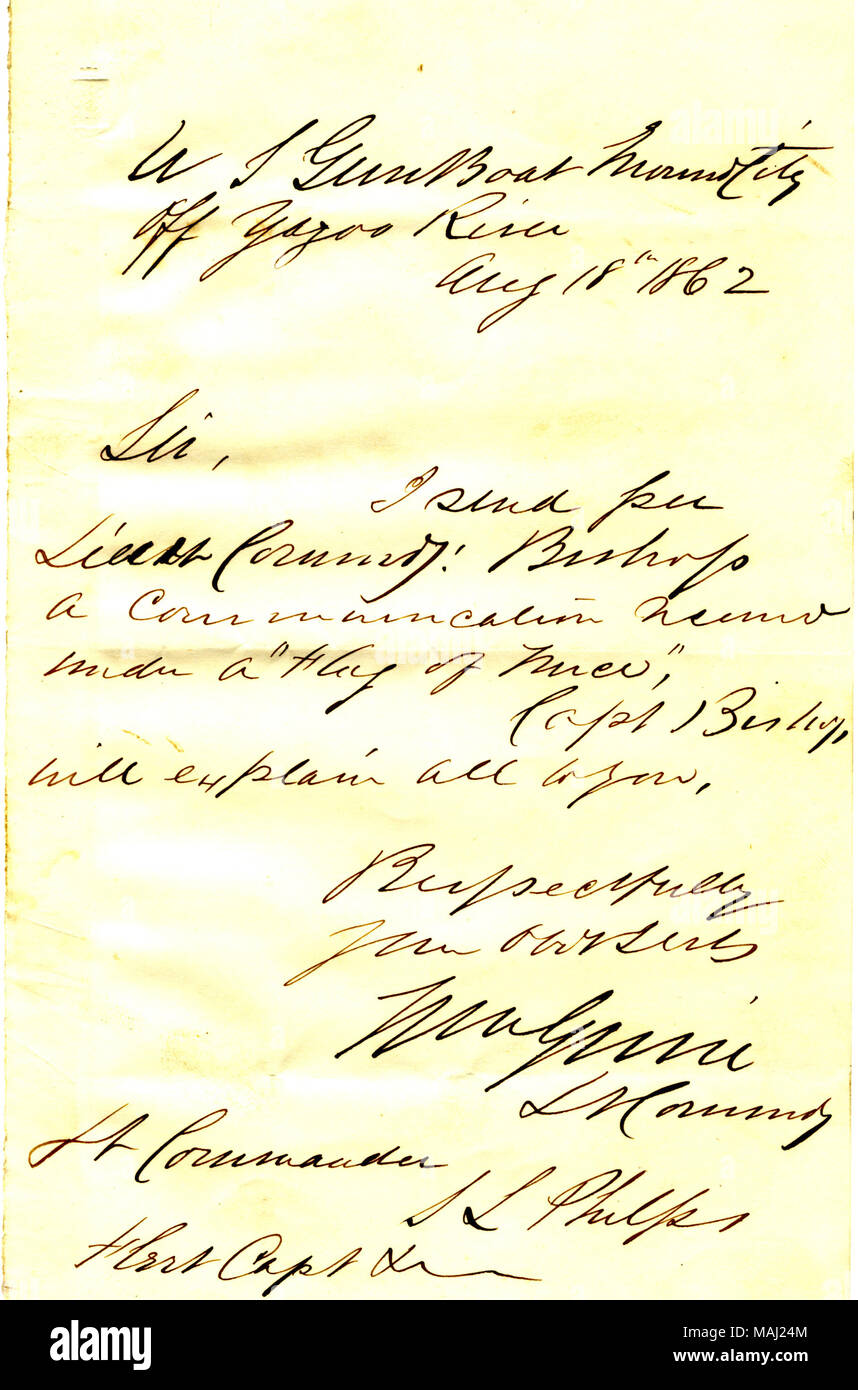 U S GunBoat Mound City
Off Yazoo River
Aug 18th 1862
Sir,
I send per
Lieut Commdg: Bishop
a communication recind
under a "Flag of Truce",
Capt Bishop,
will explain all to you,
Respectfully
Your Obdt Servt
Wm Gwin
Lt Commdg
Lt Commander
S L Phelps
Fleet Capt &c
alamy
Image ID: MAJ24M
www.alamy.com